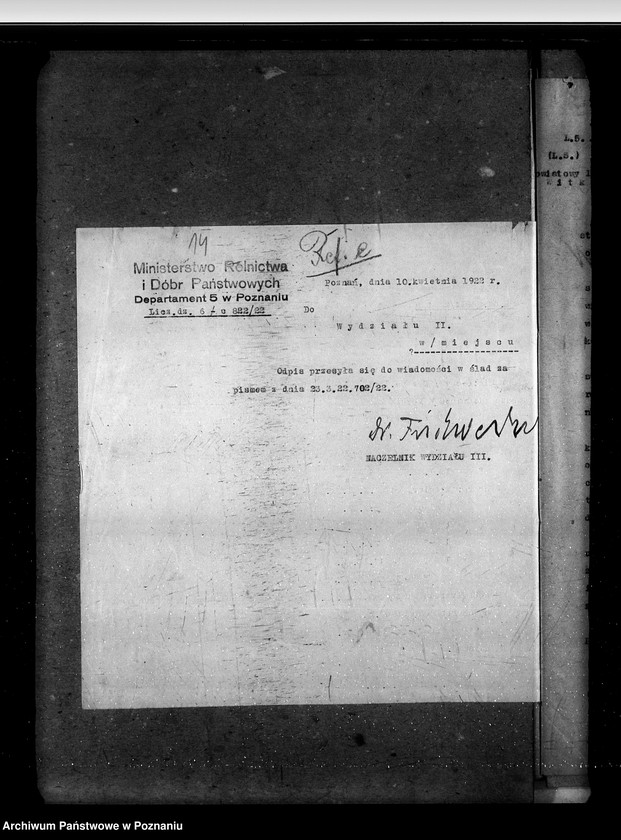 14
Ref. c
Ministerstwo Rolnictwa
i Dóbr Państwowych
Departament 5 w Poznaniu
Licz.dz. 6 / c 822/22
Poznań, dnia 10.kwietnia 1922 r.
Do
Wydziału II.
w/miejscu
Odpis przesyła się do wiadomości w ślad za
pismem z dnia 23.3.22.702/22.
dr.
NACZELNIK WYDZIAŁU III.
L.S.
(L.S.)
Archiwum Państwowe w Poznaniu